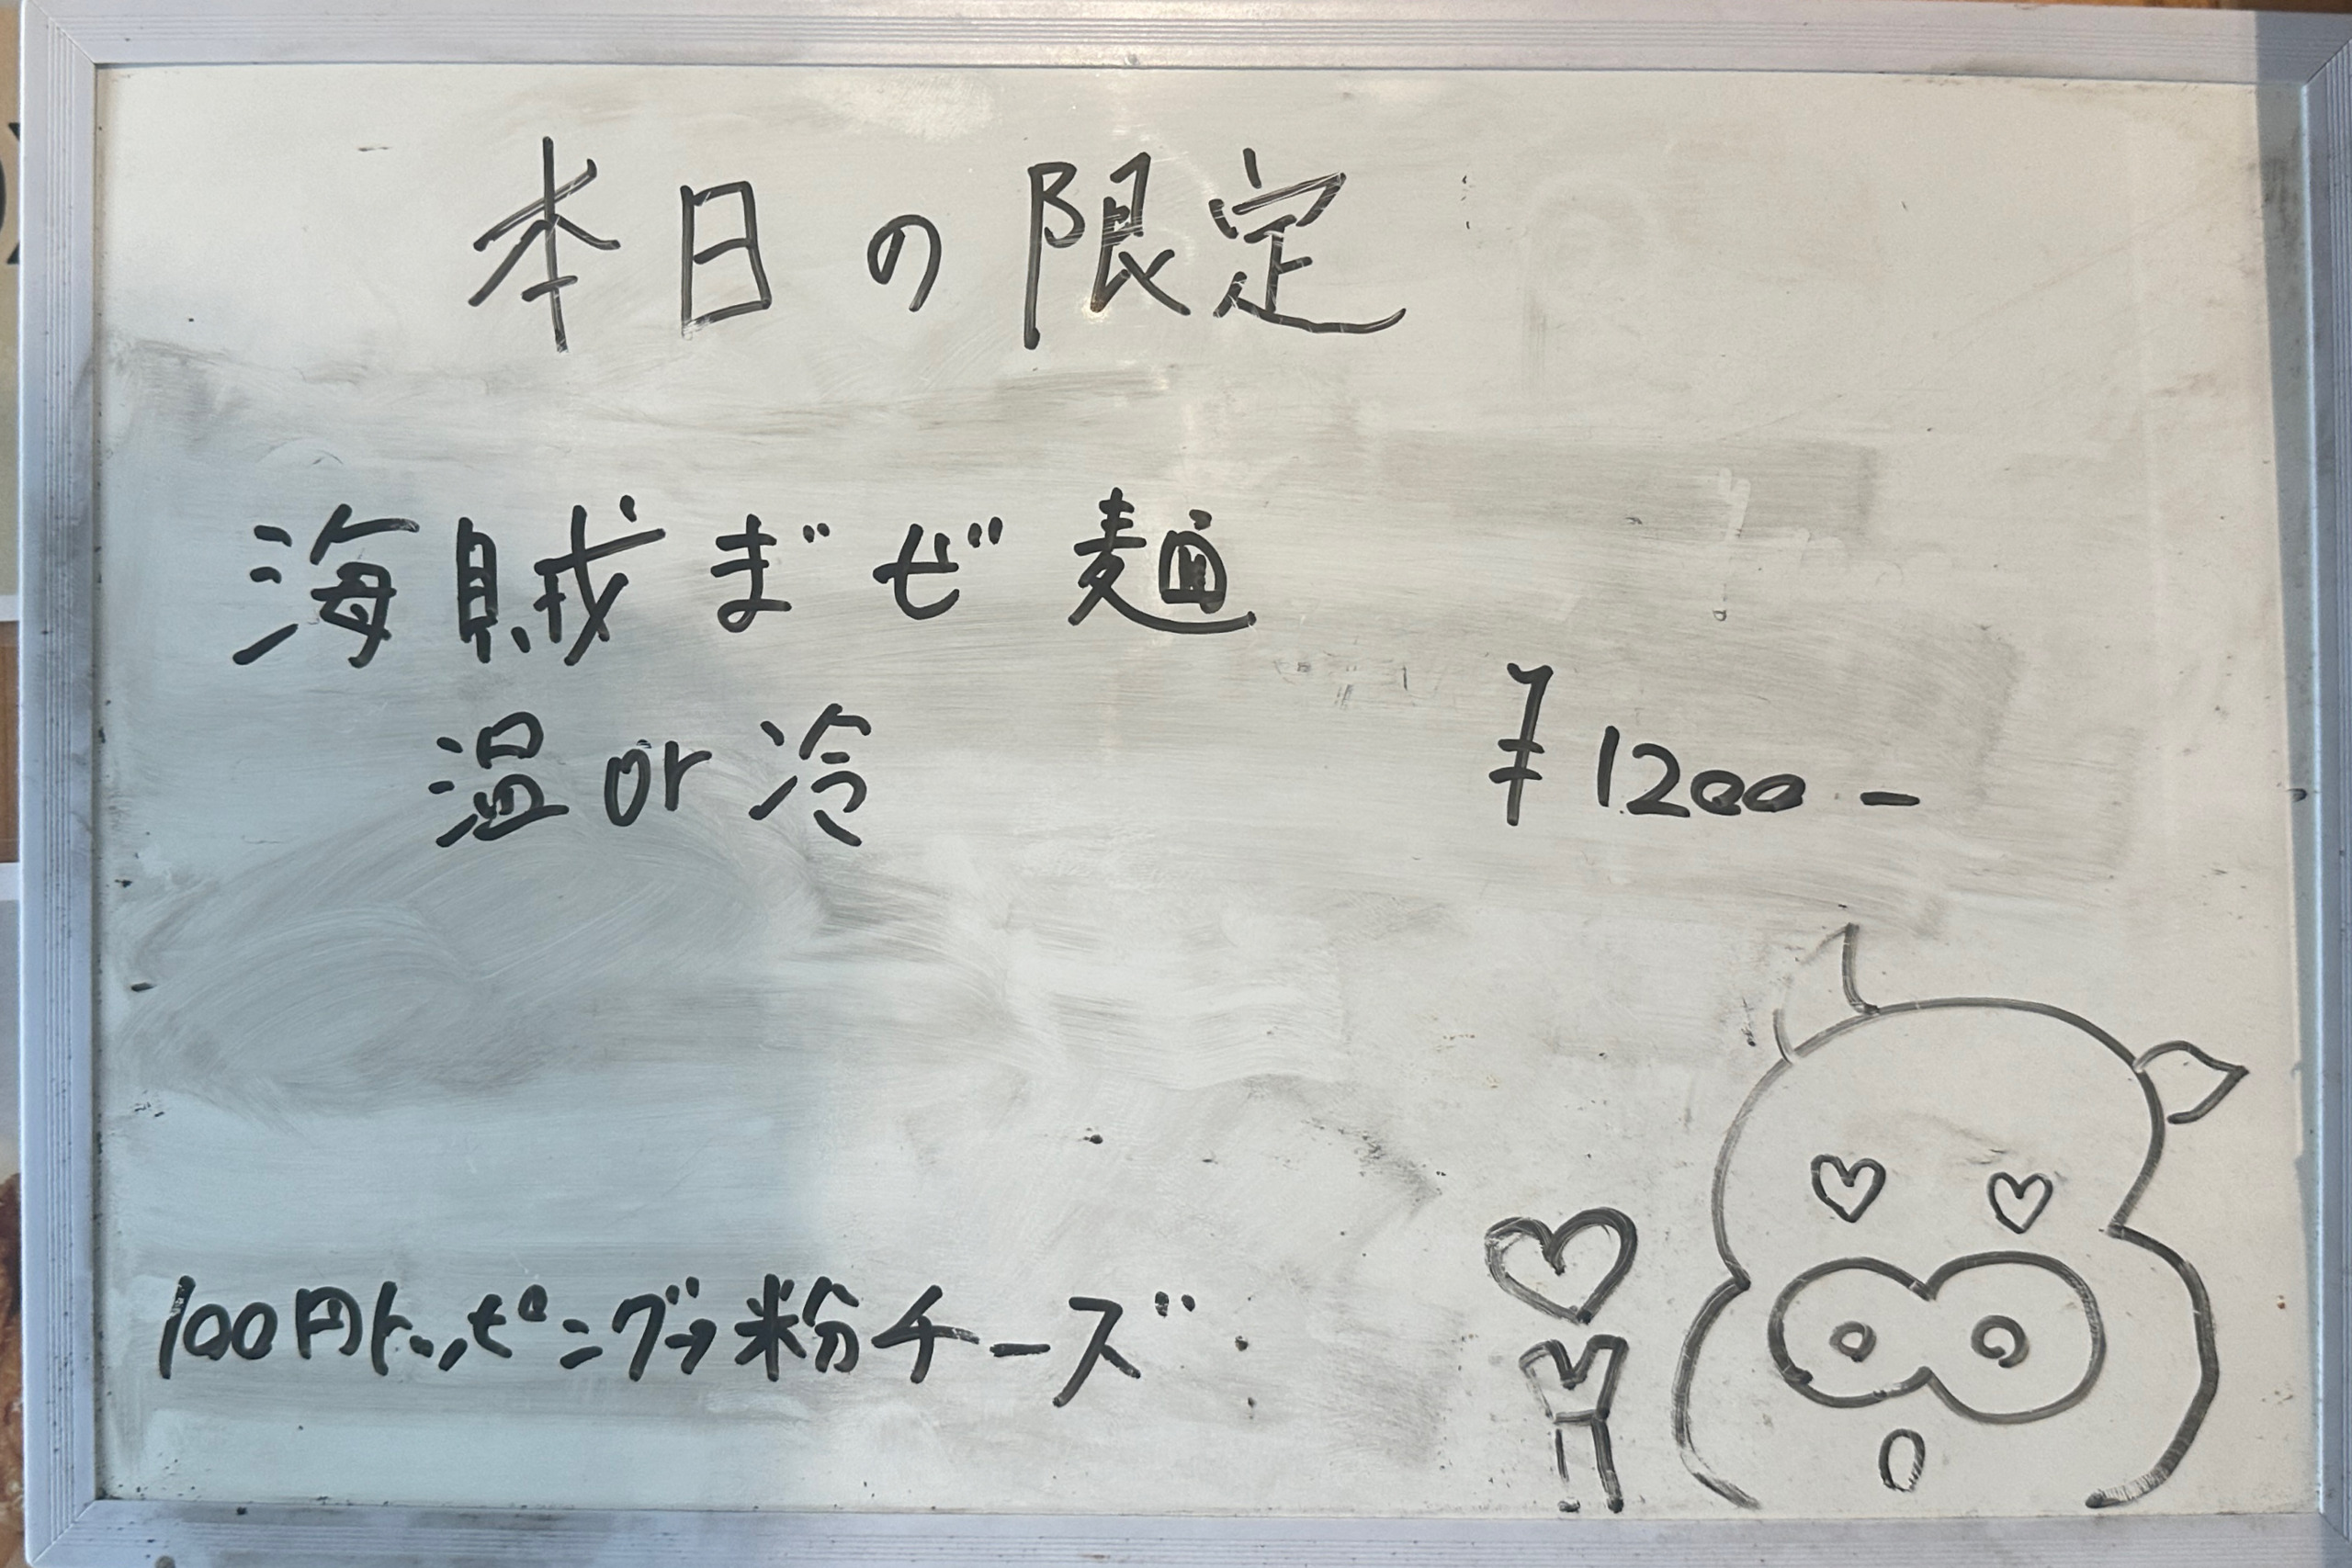 本日の限定
海賊まぜ麺
温or冷
¥1200-
100円トッピング→粉チーズ